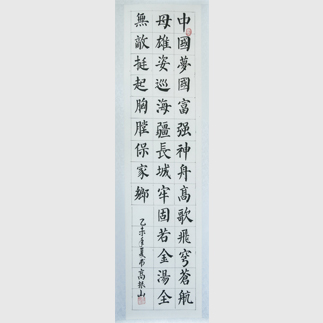 中國夢國富强神舟高歌飛穹蒼航
母雄姿巡海疆長城牢固若金湯全
無敵挺起胸膛保家鄉
乙未年夏书高振山